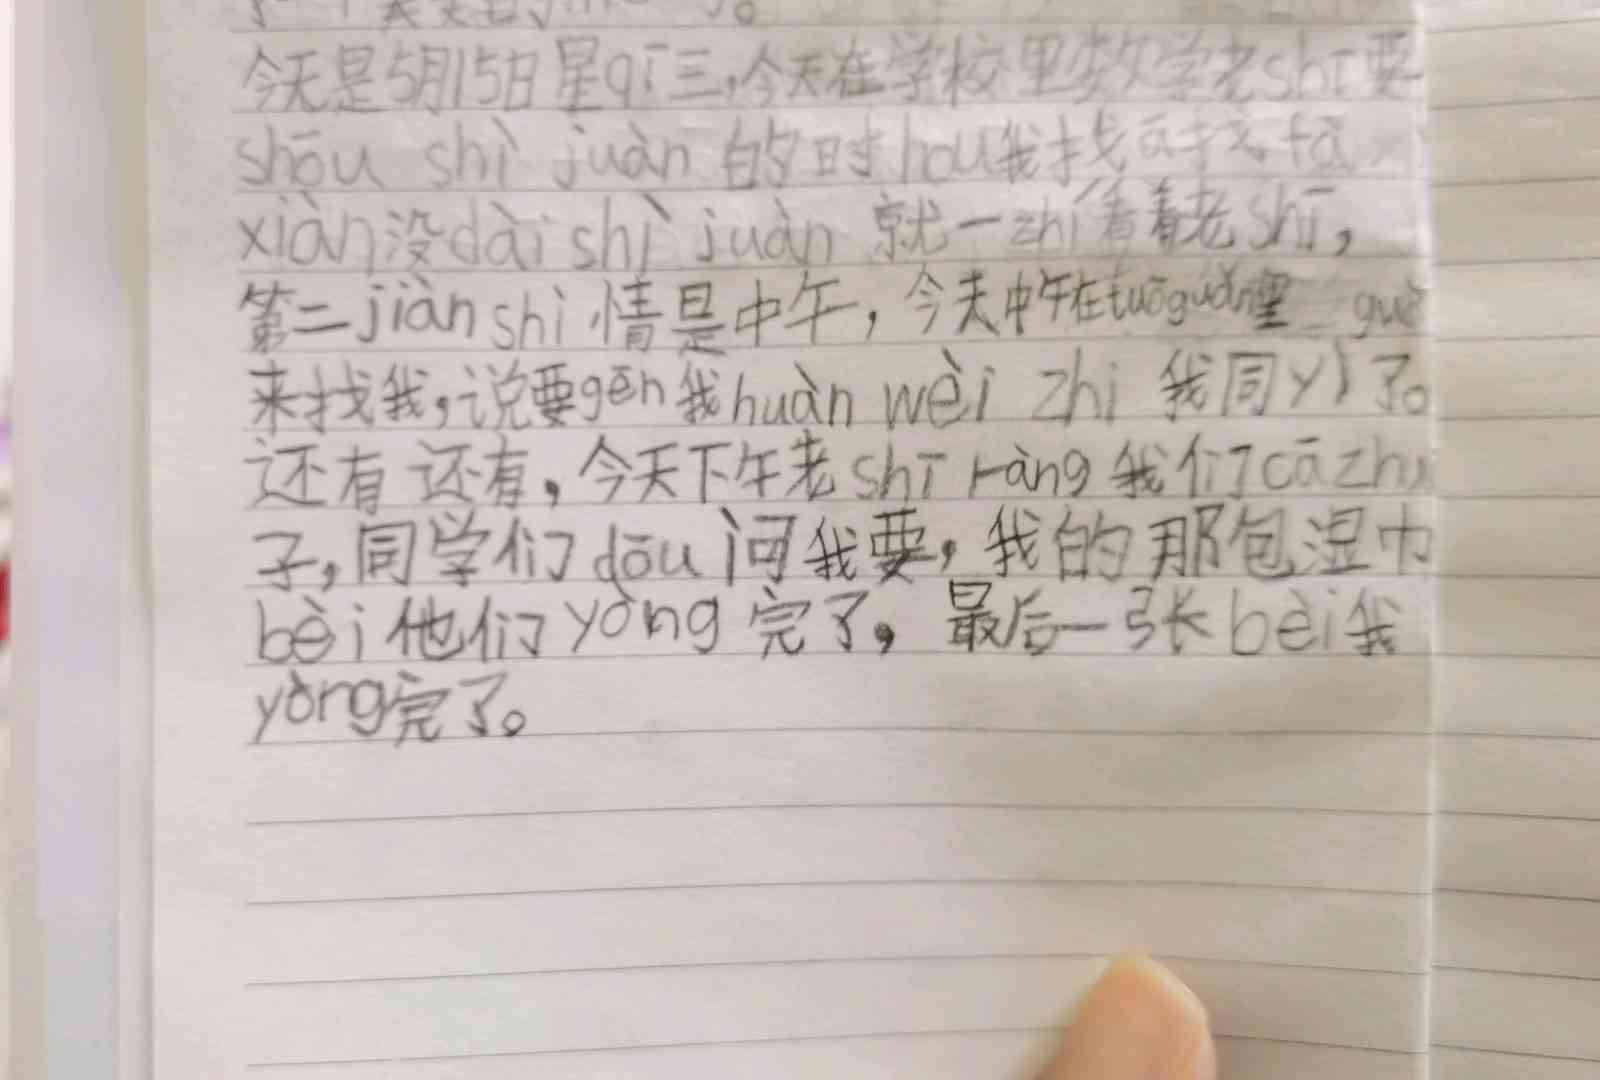 今天是5月15日星qī三,今天在学校里数学老shī要
shōu shì juàn 的时hou我找ā找,fā
xiàn没dài shì juàn 就一zhí看着老shī,
第二jiàn shì 情是中午,今天中午在tuōguǎn里
来找我,说要gēn我huàn wèi zhi 我同yì了。
还有 还有,今天下午老shī ràng 我们cā zhuō
子,同学们 dōu 问我要,我的那包湿巾
bèi 他们 yòng 完了, 最后一张 bèi 我
yòng完了。